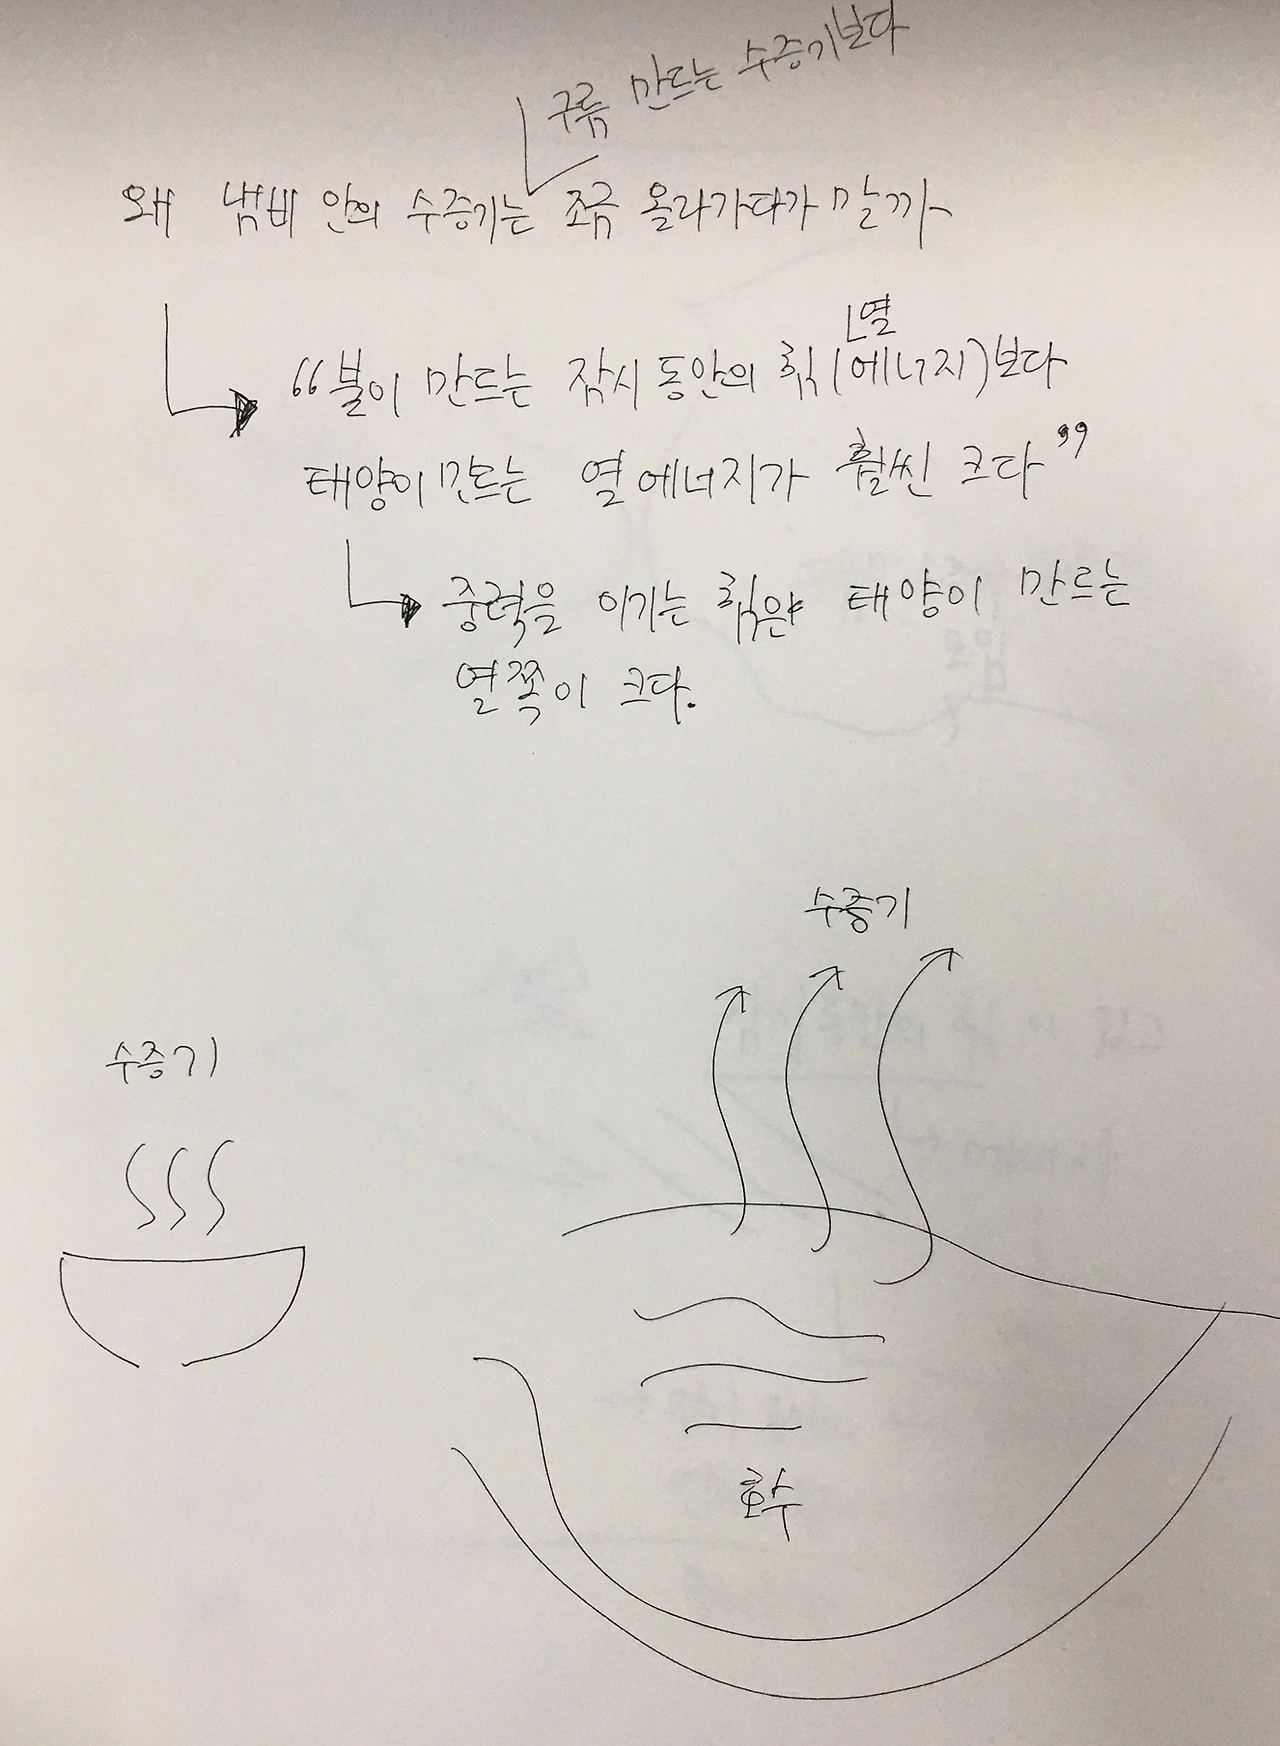 구름 만드는 수증기보다
왜 냄비 안의 수증기는 조금 올라가다가 말까
열
“불이 만드는 잠시 동안의 힘(에너지)보다
태양이 만드는 열에너지가 훨씬 크다”
중력을 이기는 힘은 태양이 만드는
열쪽이 크다.
수증기
수증기
호수